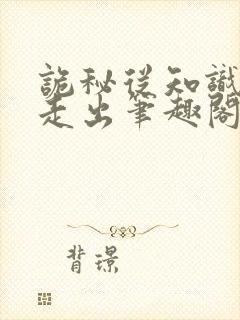 詭秘從知識
走出筆趣閣
背璟